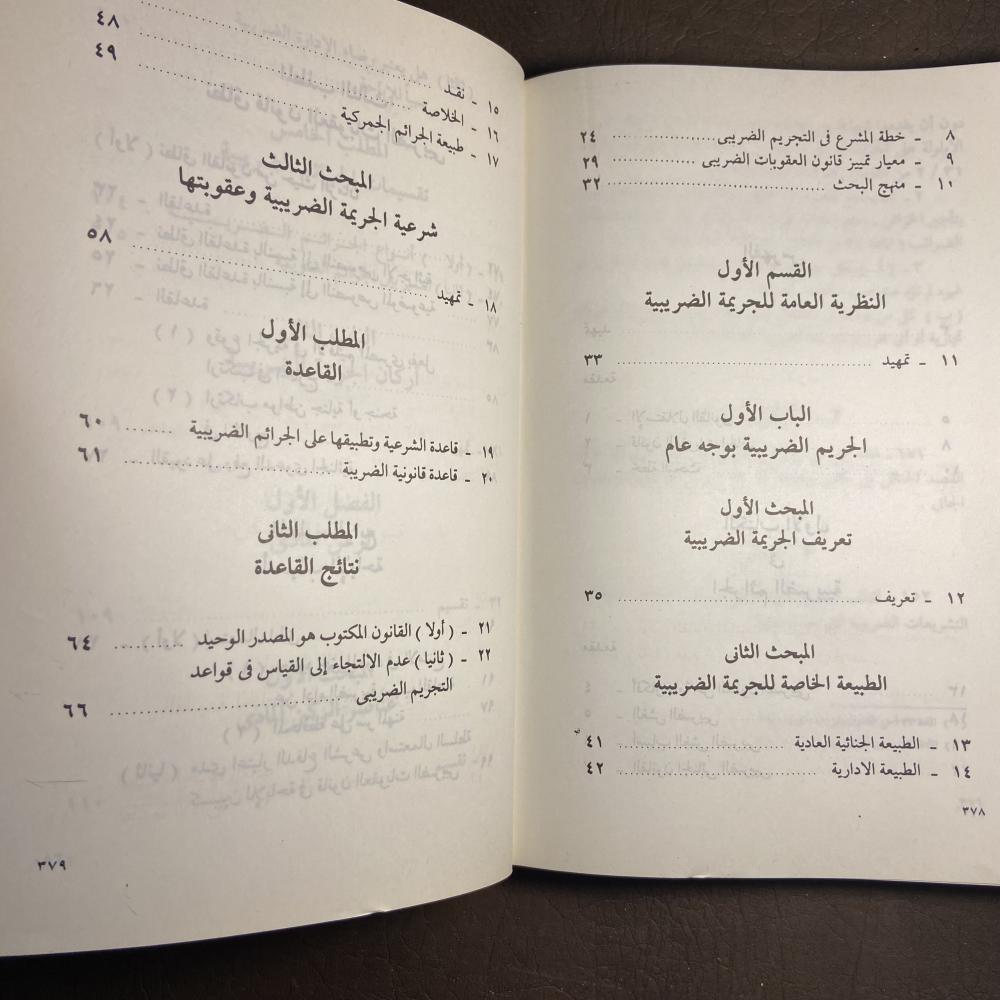 ٨ ـ خطة المشرع فى التجريم الضريبى ........ ٢٤
٩ ـ معيار تمييز قانون العقوبات الضريبى ........ ٢٩
١٠ ـ منهج البحث ........ ٣٢
القسم الأول
النظرية العامة للجريمة الضريبية
١١ ـ تمهيد ........ ٣٣
الباب الأول
الجريم الضريبية بوجه عام
المبحث الأول
تعريف الجريمة الضريبية
١٢ ـ تعريف ........ ٣٥
المبحث الثانى
الطبيعة الخاصة للجريمة الضريبية
١٣ ـ الطبيعة الجنائية العادية ........ ٤١
١٤ ـ الطبيعة الادارية ........ ٤٢
٣٧٨
١٥ ـ نقد ........
١٦ ـ الخلاصة ........ ٤٨
١٧ ـ طبيعة الجرائم الجمركية ........ ٤٩
المبحث الثالث
شرعية الجريمة الضريبية وعقوبتها
١٨ ـ تمهيد ........ ٥٨
المطلب الأول
القاعدة
١٩ ـ قاعدة الشرعية وتطبيقها على الجرائم الضريبية ........ ٦٠
٢٠ ـ قاعدة قانونية الضريبة ........ ٦١
المطلب الثانى
نتائج القاعدة
٢١ ـ (أولا) القانون المكتوب هو المصدر الوحيد ........ ٦٤
٢٢ ـ (ثانيا) عدم الالتجاء إلى القياس فى قواعد
التجريم الضريبى ........ ٦٦
٣٧٩